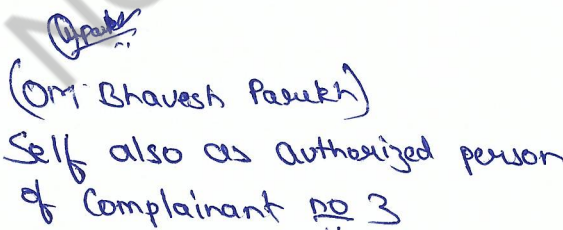 (OM Bhavesh Parekh)
Self also as authorized person
of Complainant no 3